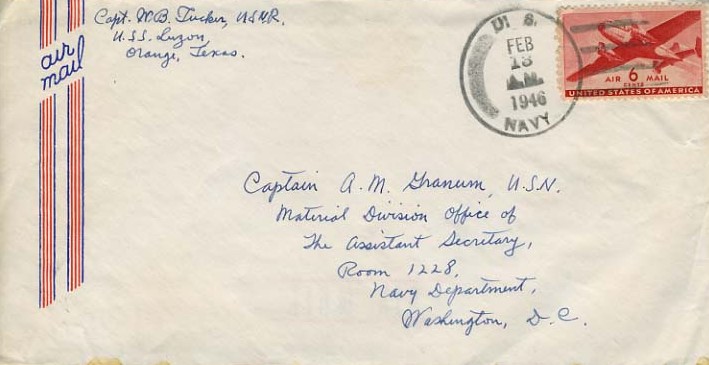 Capt. W.B. Tucker, USNR.
U.S.S. Luzon,
Orange, Texas.
air
mail
U. S.
FEB
13
A.M.
1946
NAVY
AIR 6 MAIL
CENTS
UNITED STATES OF AMERICA
Captain A. M. Granum, U.S.N.
Material Division Office of
The Assistant Secretary,
Room 1228,
Navy Department,
Washington, D.C.